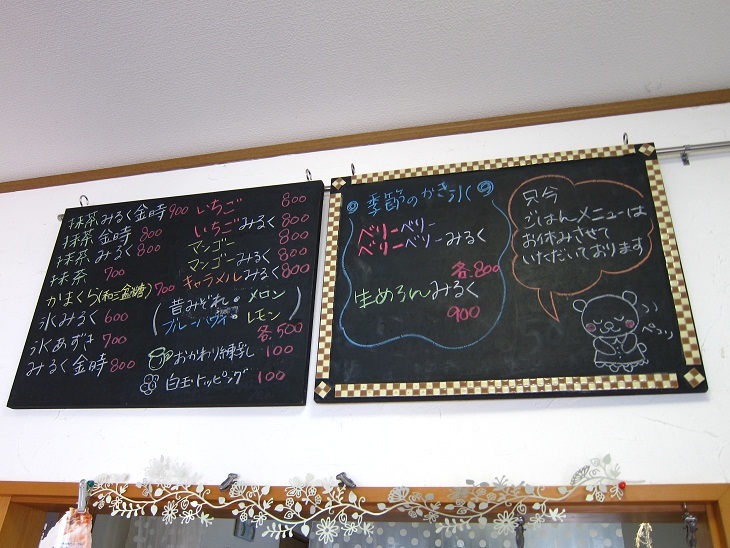 抹茶みるく金時 900
抹茶金時 800
抹茶みるく 800
抹茶 700
かまくら(和三盆糖) 700
氷みるく 600
氷あずき 700
みるく金時 800
いちご 800
いちごみるく 800
マンゴー 800
マンゴーみるく 800
キャラメルみるく 800
(昔みぞれ。メロン
ブルーハワイ。レモン)
各500
おかわり練乳 100
白玉トッピング 100
季節のかき氷
ベリーベリー
ベリーベリーみるく
各800
生めろんみるく
900
只今
ごはんメニューは
お休みさせて
いただいております
ペコッ